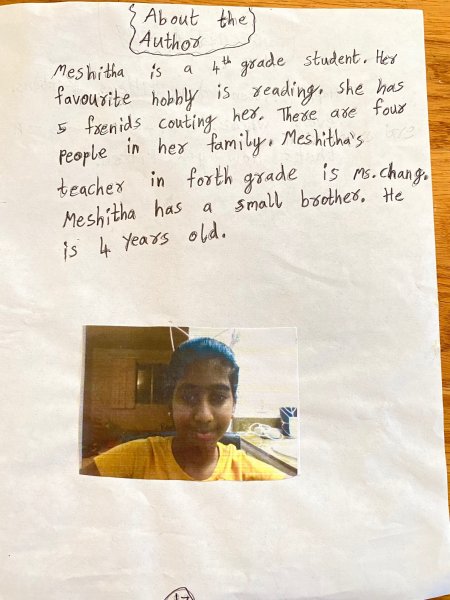 About the
Author
Meshitha is a 4th grade student. Her
favourite hobbly is reading. she has
5 frenids couting her. There are four
people in her family. Meshitha's
teacher in forth grade is Ms. chang.
Meshitha has a small brother. He
is 4 years old.